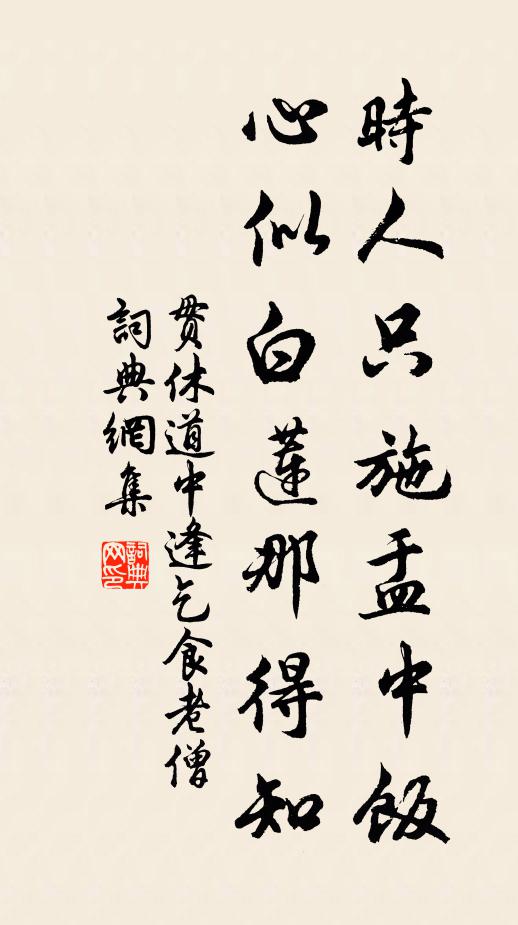 時人只施盂中飯
心似白蓮那得知
貫休道中逢乞食老僧
詞典網集
詞典網印